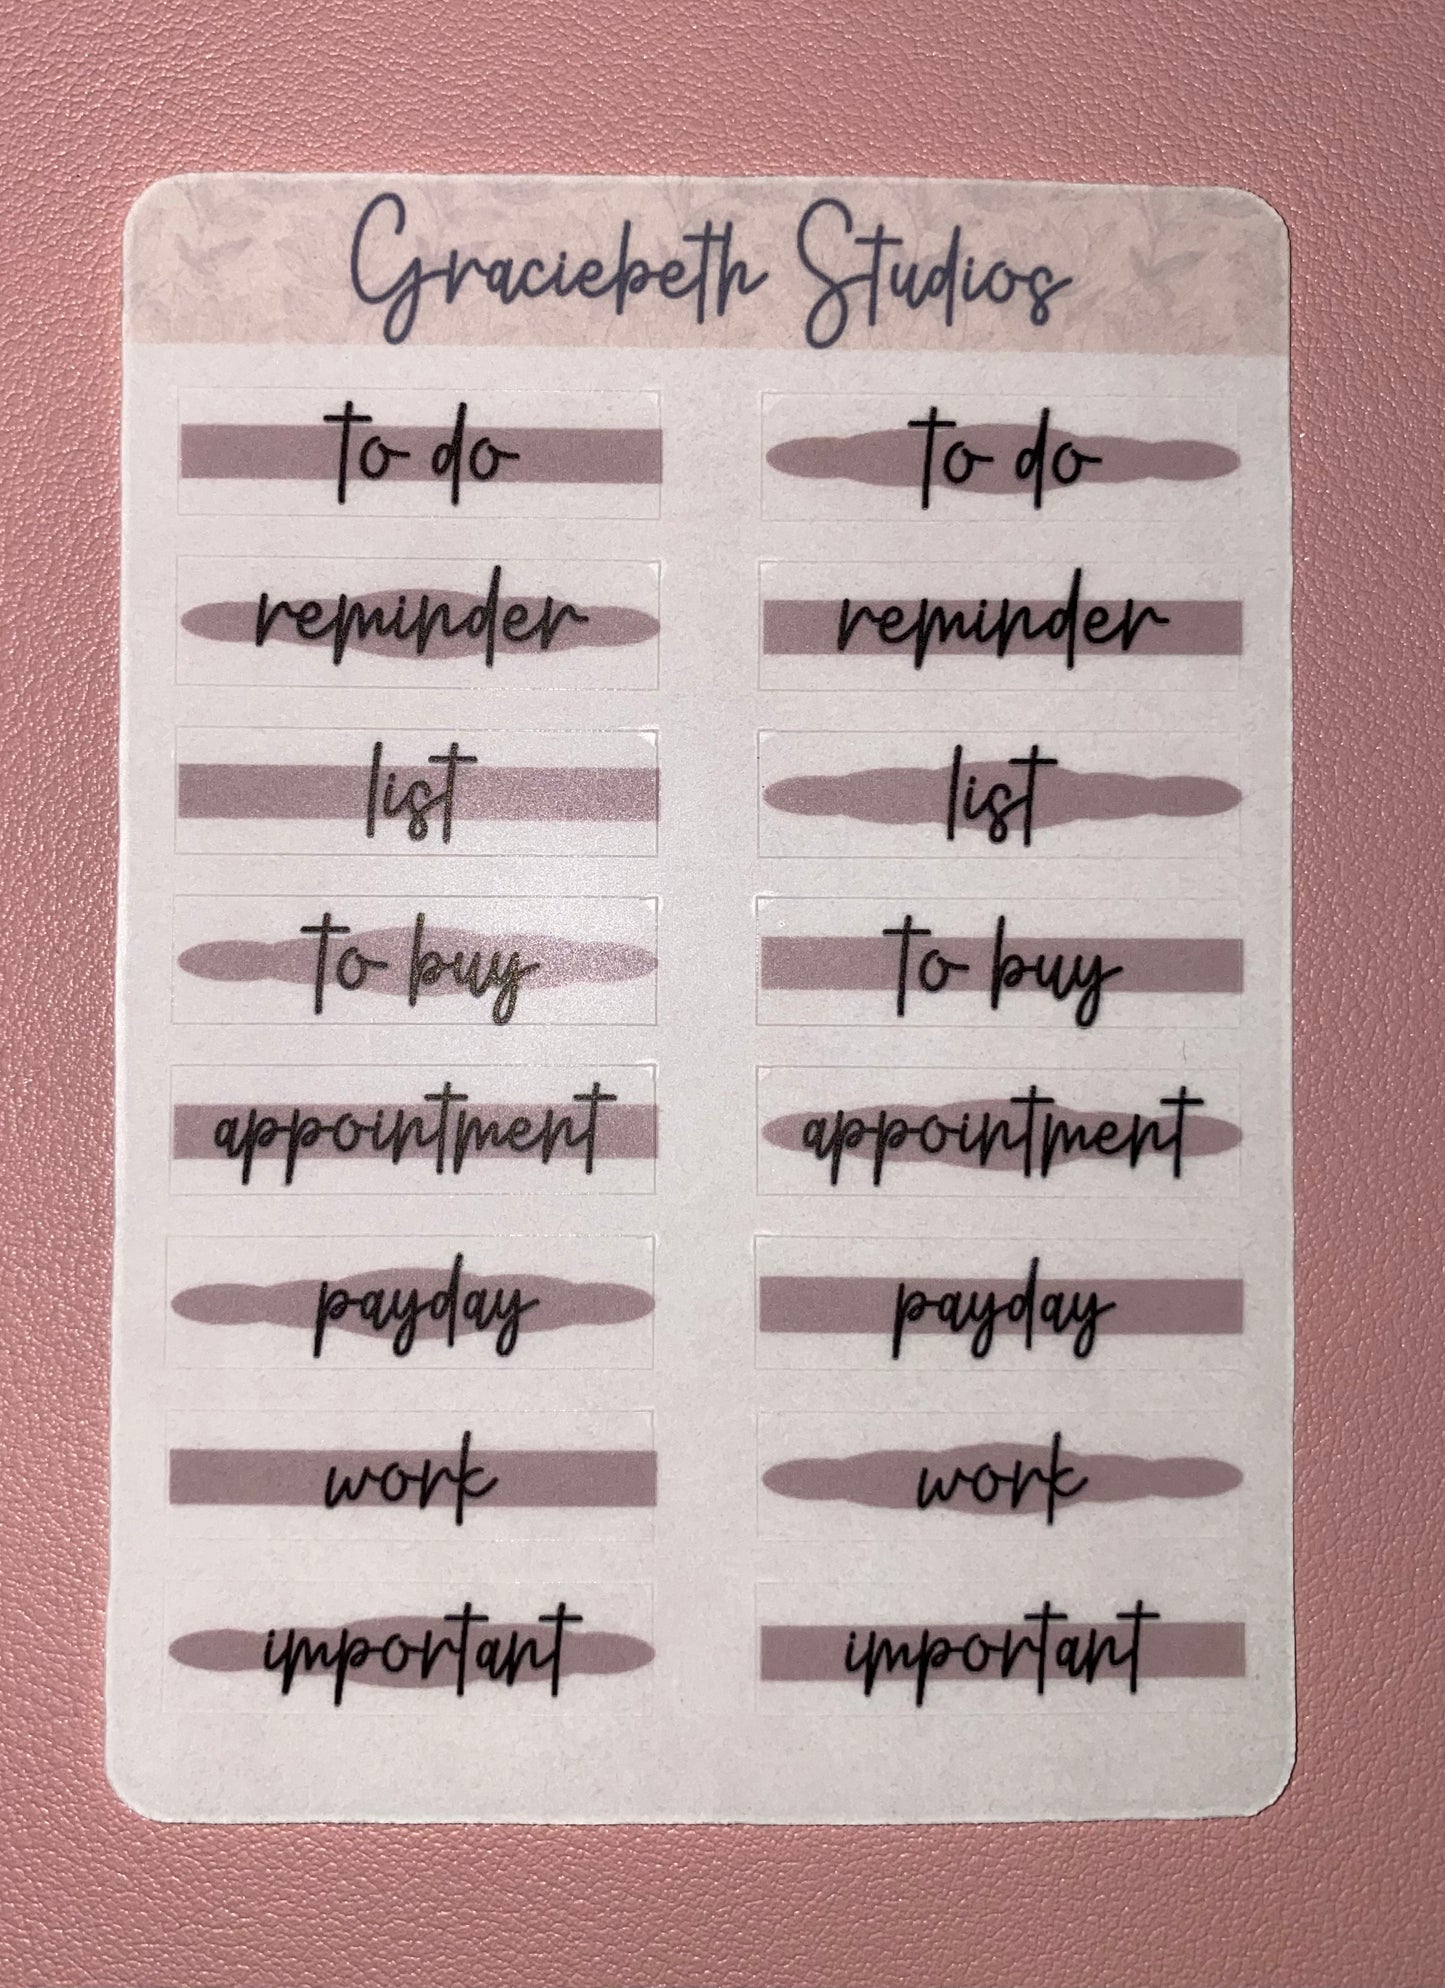 Graciebeth Studios
to do to do
reminder reminder
list list
to buy to buy
appointment appointment
payday payday
work work
important important